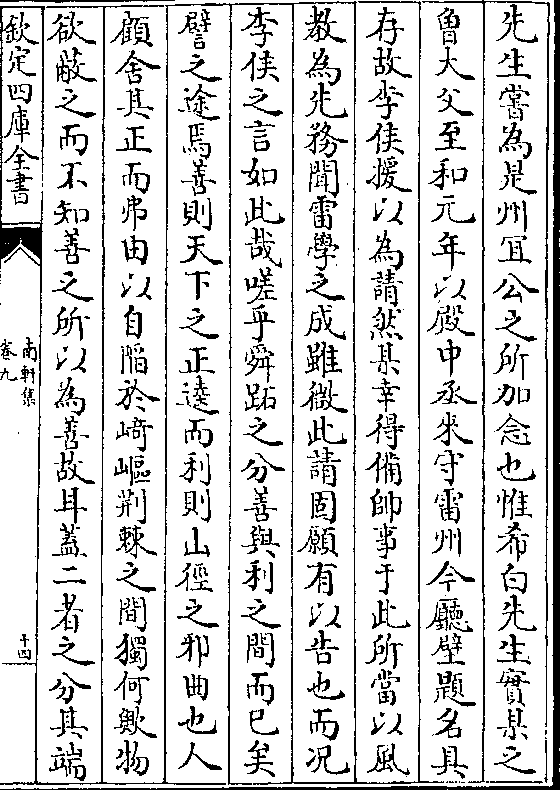 先生嘗為是州宜公之所加念也惟希白先生實某之
曾大父至和元年以殿中丞來守雷州今廳壁題名具
存故李侯援以為請然某幸得備帥事于此所當以風
教為先務聞雷學之成雖微此請固願有以告也而況
李侯之言如此哉嗟乎舜跖之分善與利之間而已矣
譬之途焉善則天下之正逵而利則山徑之邪曲也人
顧舍其正而弗由以自陷於崎嶇荆棘之間獨何歟物
欲蔽之而不知善之所以為善故耳蓋二者之分其端
欽定四庫全書
南軒集
卷九
十四